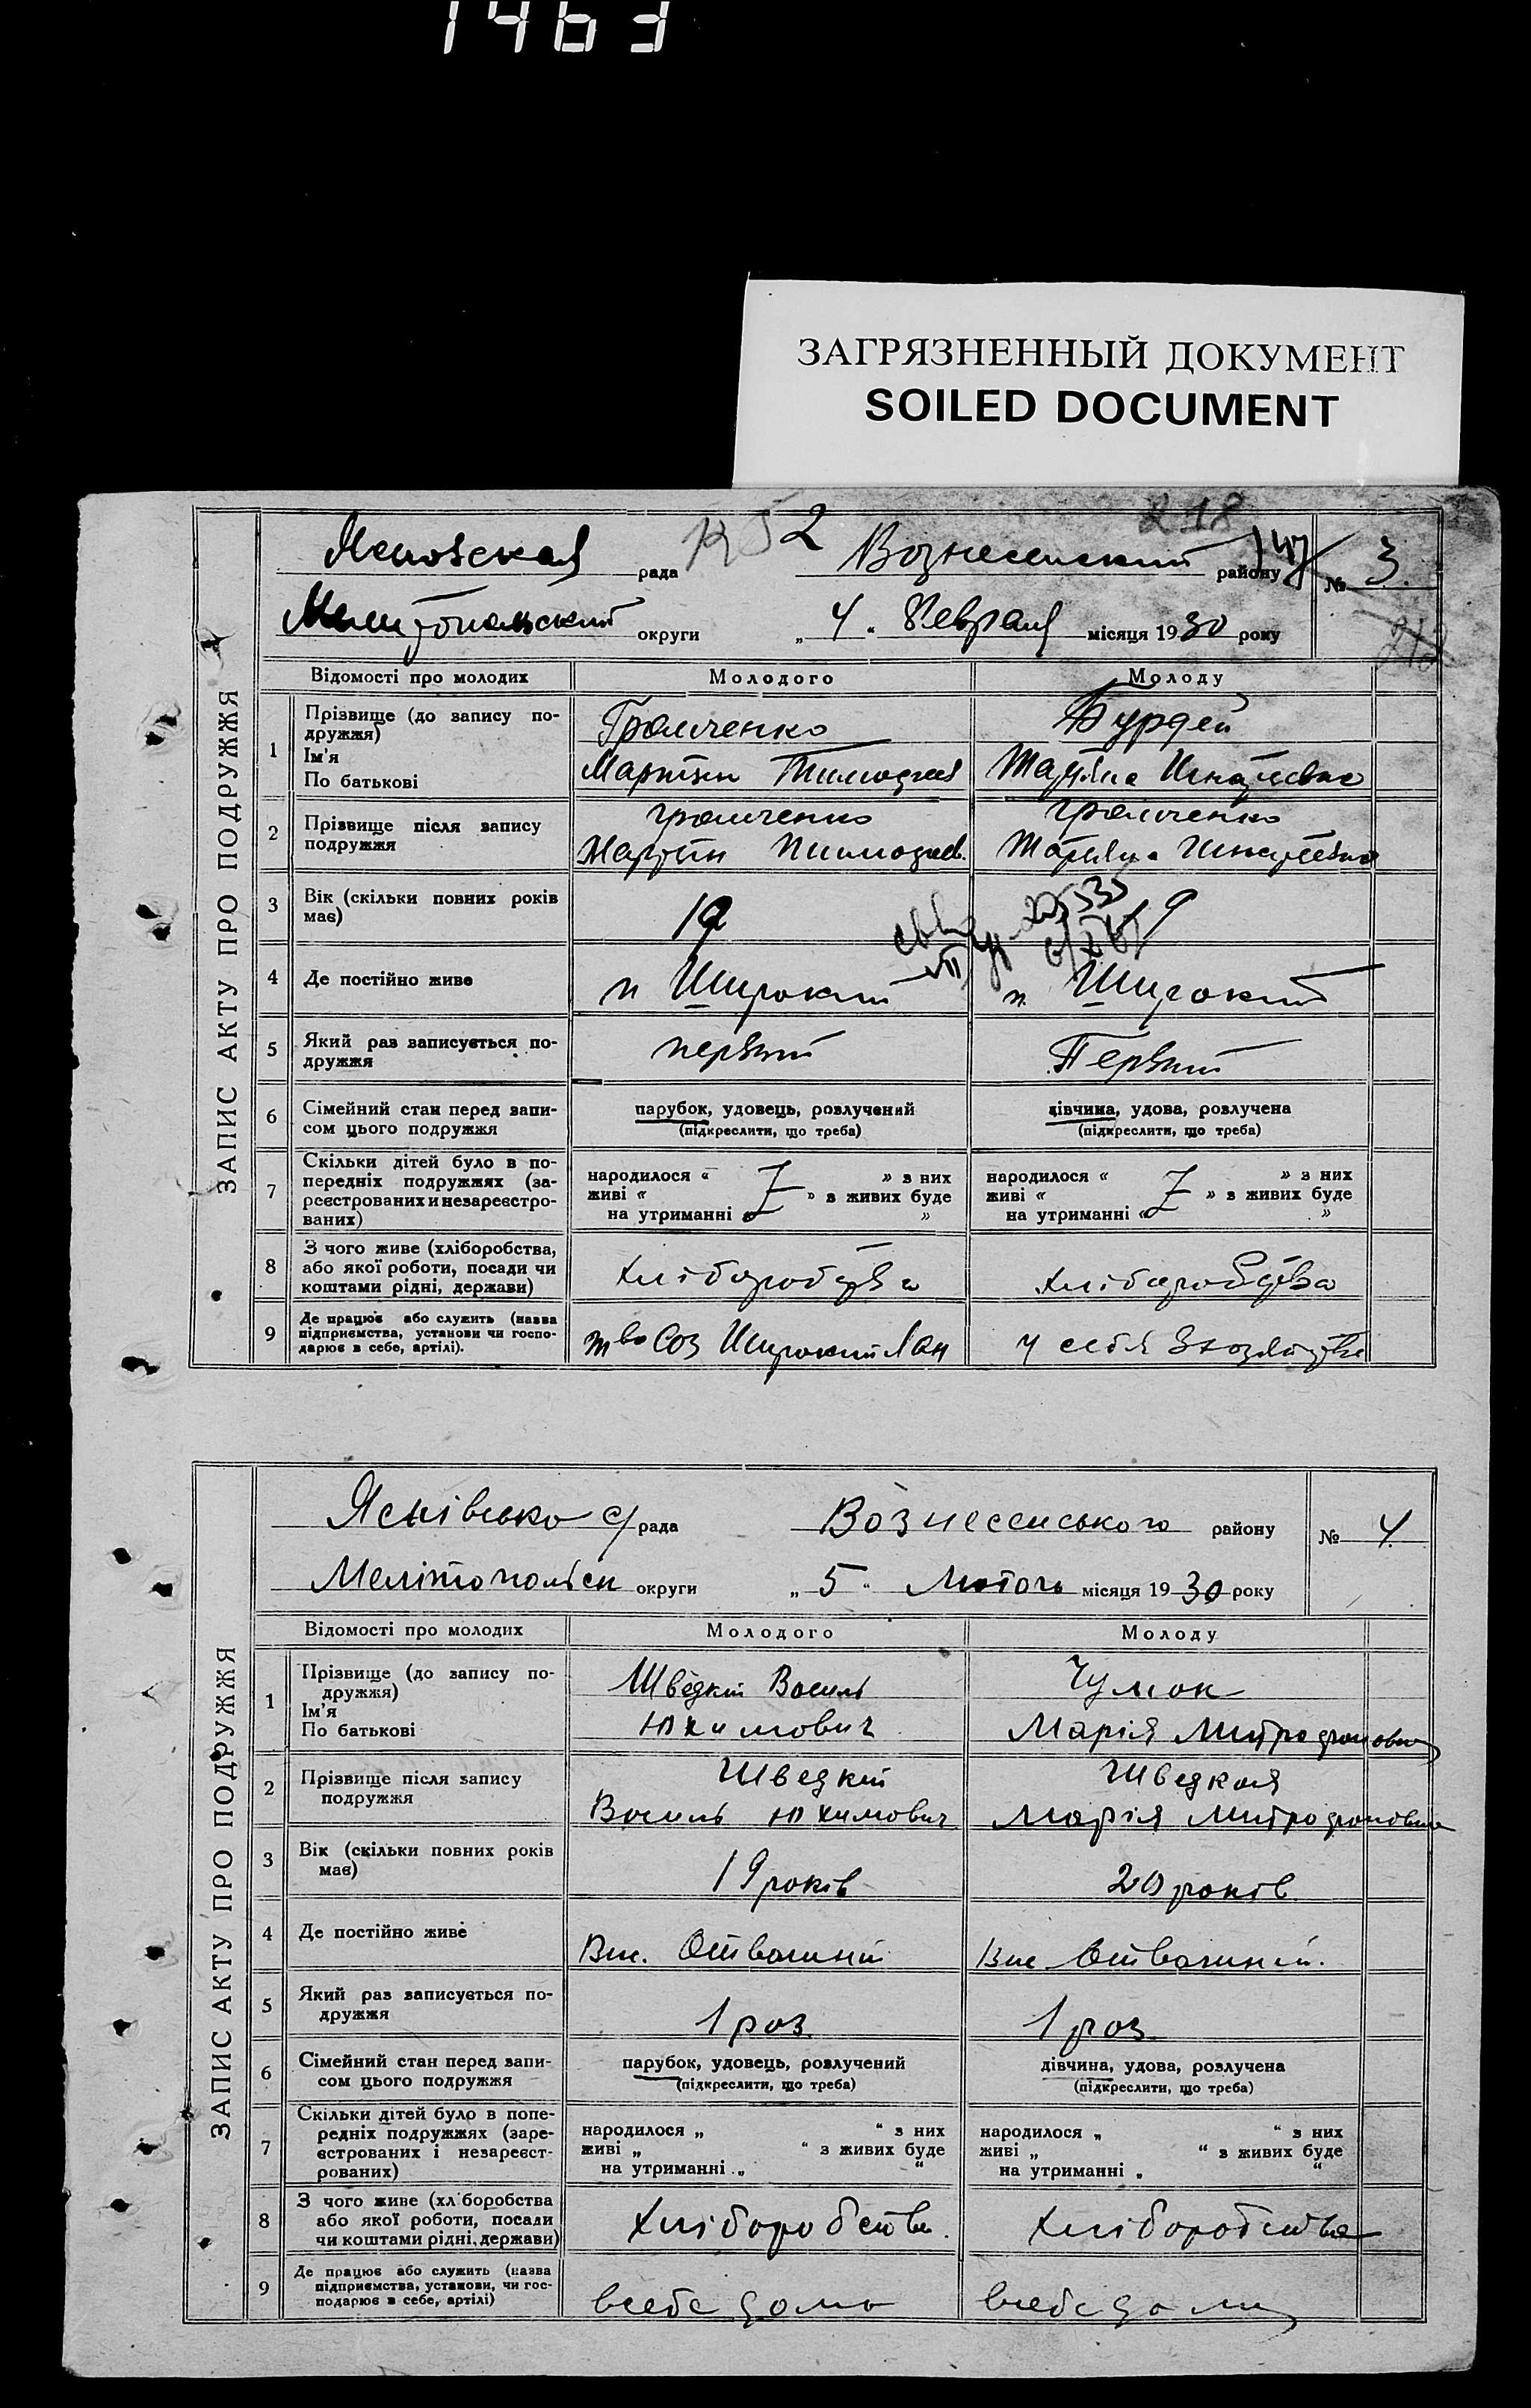 1463
ЗАГРЯЗНЕННЫЙ ДОКУМЕНТ
SOILED DOCUMENT
218
ЗАПИС АКТУ ПРО ПОДРУЖЖЯ
рада Вознесенский району № 3.
Мелитопольский округи „ 4 “ Февраля місяця 1930 року
Відомості про молодих Молодого Молоду
1 Прізвище (до запису по-
дружжя)
Ім'я
По батькові
Громченко
Мартын
Бурдей
2 Прізвище після запису
подружжя
Громченко
Мартын
Громченко
3 Вік (скільки повних років
має)
19 19
4 Де постійно живе п Широкий п. Широкий
5 Який раз записується по-
дружжя
первый Первый
6 Сімейний стан перед запи-
сом цього подружжя
парубок, удовець, розлучений
(підкреслити, що треба)
дівчина, удова, розлучена
(підкреслити, що треба)
7 Скільки дітей було в по-
передніх подружжях (за-
реєстрованих и незареєстро-
ваних)
народилося « Z » з них
живі « » з живих буде
на утриманні « »
народилося « Z » з них
живі « » з живих буде
на утриманні « »
8 З чого живе (хліборобства,
або якої роботи, посади чи
коштами рідні, держави)
хліборобства хліборобства
9 Де працює або служить (назва
підприємства, установи чи госпо-
дарює в себе, артілі).
тво Соз Широкий Лан у себя
ЗАПИС АКТУ ПРО ПОДРУЖЖЯ
Яснівсько с/рада Вознесенського району № 4.
Мелітопольск округи „ 5 “ місяця 1930 року
Відомості про молодих Молодого Молоду
1 Прізвище (до запису по-
дружжя)
Ім'я
По батькові
Шведкий Василь
Юхимович
Чумак
Марія Митрофановна
2 Прізвище після запису
подружжя
Шведкий
Василь Юхимович
Шведкая
Марія Митрофановна
3 Вік (скільки повних років
має)
19 років 20 років
4 Де постійно живе
Вис. Отважний Вис Отважний.
5 Який раз записується по-
дружжя
1 раз 1 раз
6 Сімейний стан перед запи-
сом цього подружжя
парубок, удовець, розлучений
(підкреслити, що треба)
дівчина, удова, розлучена
(підкреслити, що треба)
7 Скільки дітей було в попе-
редніх подружжях (заре-
єстрованих і незареєст-
рованих)
народилося „ “ з них
живі „ “ з живих буде
на утриманні „ “
народилося „ “ з них
живі „ “ з живих буде
на утриманні „ “
8 З чого живе (хліборобства
або якої роботи, посади
чи коштами рідні, держави)
Хліборобства Хліборобства
9 Де працює або служить (назва
підприємства, установи, чи гос-
подарює в себе, артілі)
всебе дома всебе дома